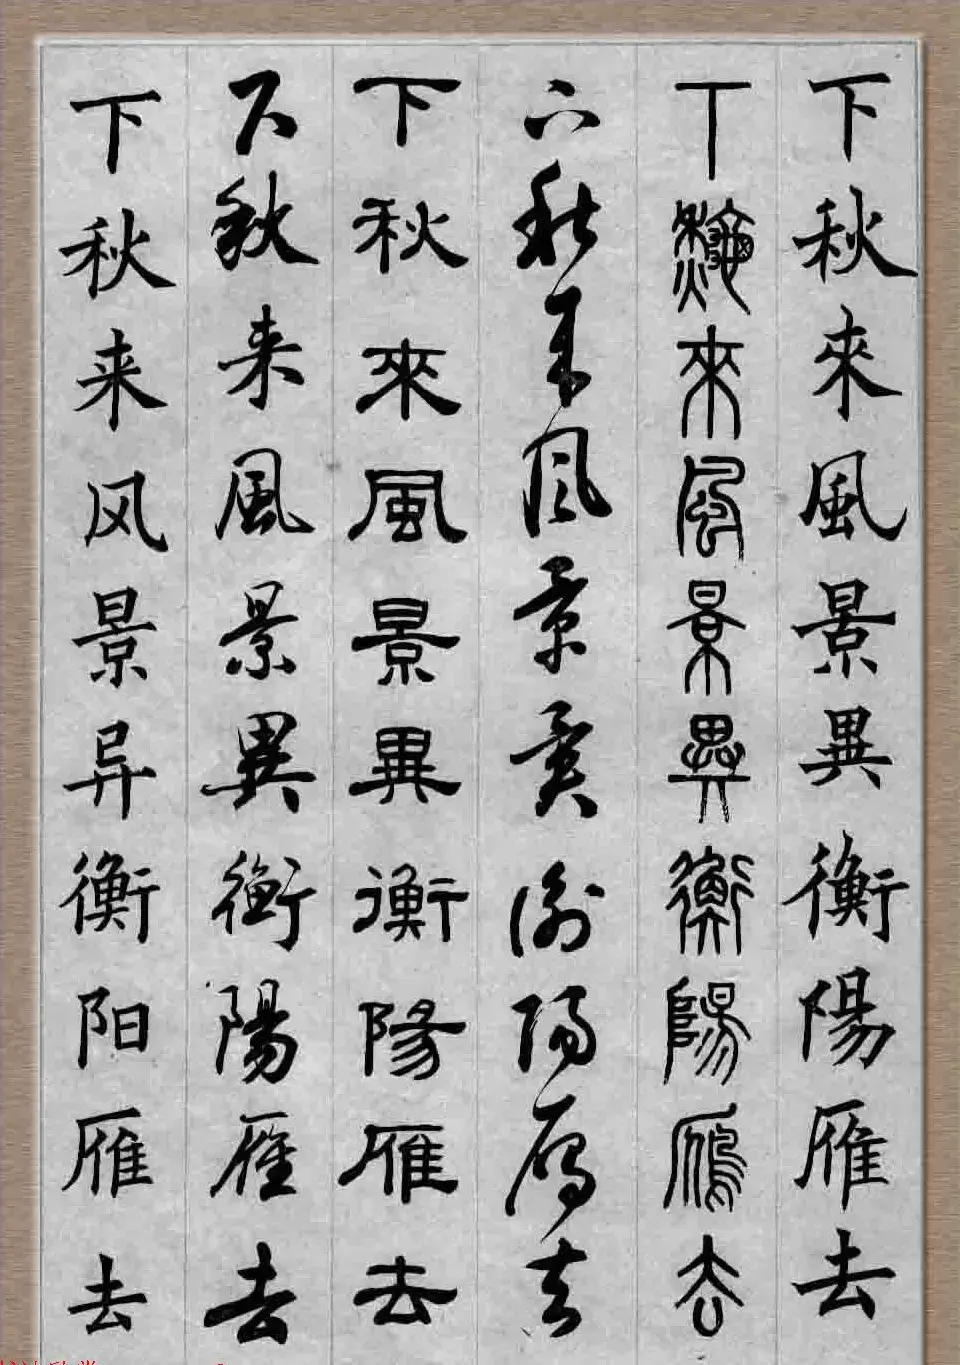 下秋來風景異衡陽雁去
下秋來風景異衡陽鴈去
下秋来風景異衡陽鴈去
下秋來風景異衡陽雁去
下秋来風景異衡陽雁去
下秋来风景异衡阳雁去